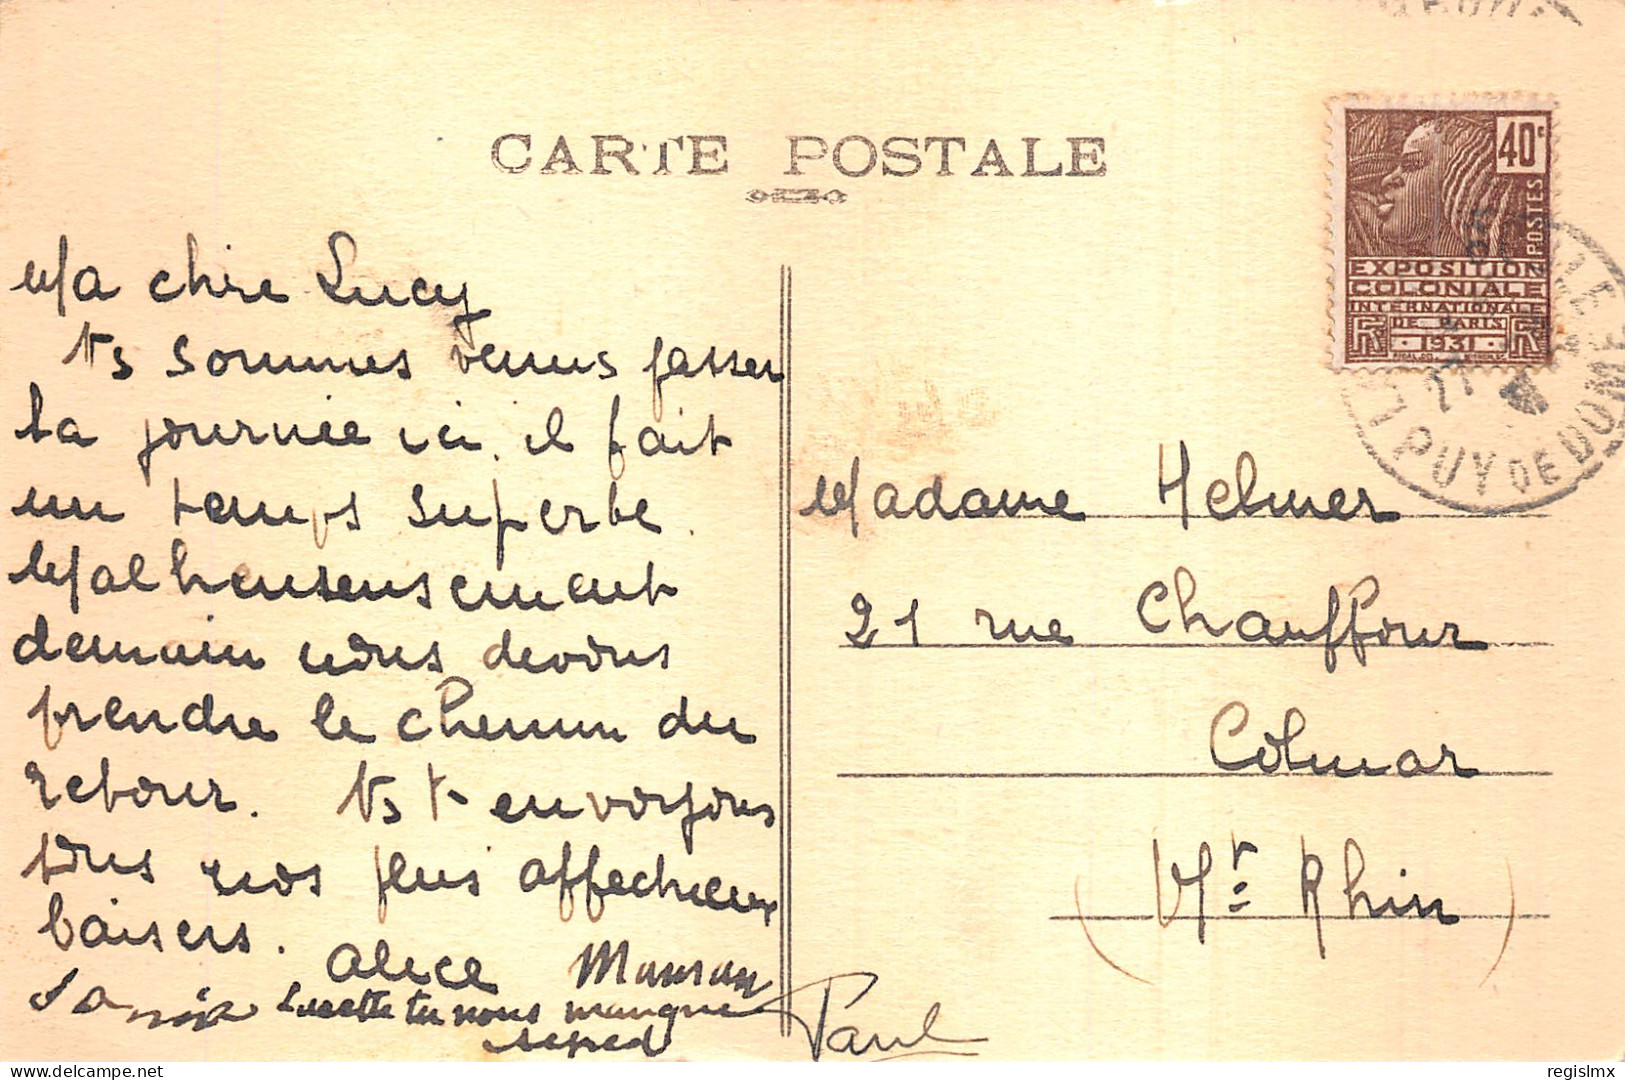 CARTE POSTALE
40c
POSTES
EXPOSITION
COLONIALE
INTERNATIONALE
DE PARIS
RF 1931 RF
PUY DE DOME
Ma chère Lucy
Ns sommes venus passer
la journée ici, il fait
un temps superbe.
Malheureusement
demain nous devons
prendre le chemin du
retour. Ns t envoyons
tous nos plus affectueux
baisers.
Alice Maman
Lucette tu nous manque
Paul
Madame Helmer
21 rue Chauffour
Colmar
(Ht Rhin)
regislmx